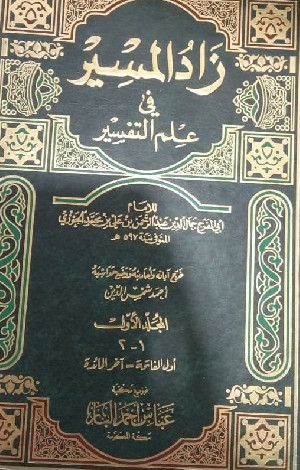 زاد المسير
في
علم التفسير
للإمام
أبي الفرج جمال الدين عبد الرحمن بن علي بن محمد الجوزي
المتوفى سنة ٥٩٧ هـ
خرج آياته وأحاديثه ووضع حواشيه
أحمد شمس الدين
المجلد الأول
١ - ٢
أول الفاتحة - آخر المائدة
توزيع مكتبة
عباس أحمد الباز
مكة المكرمة